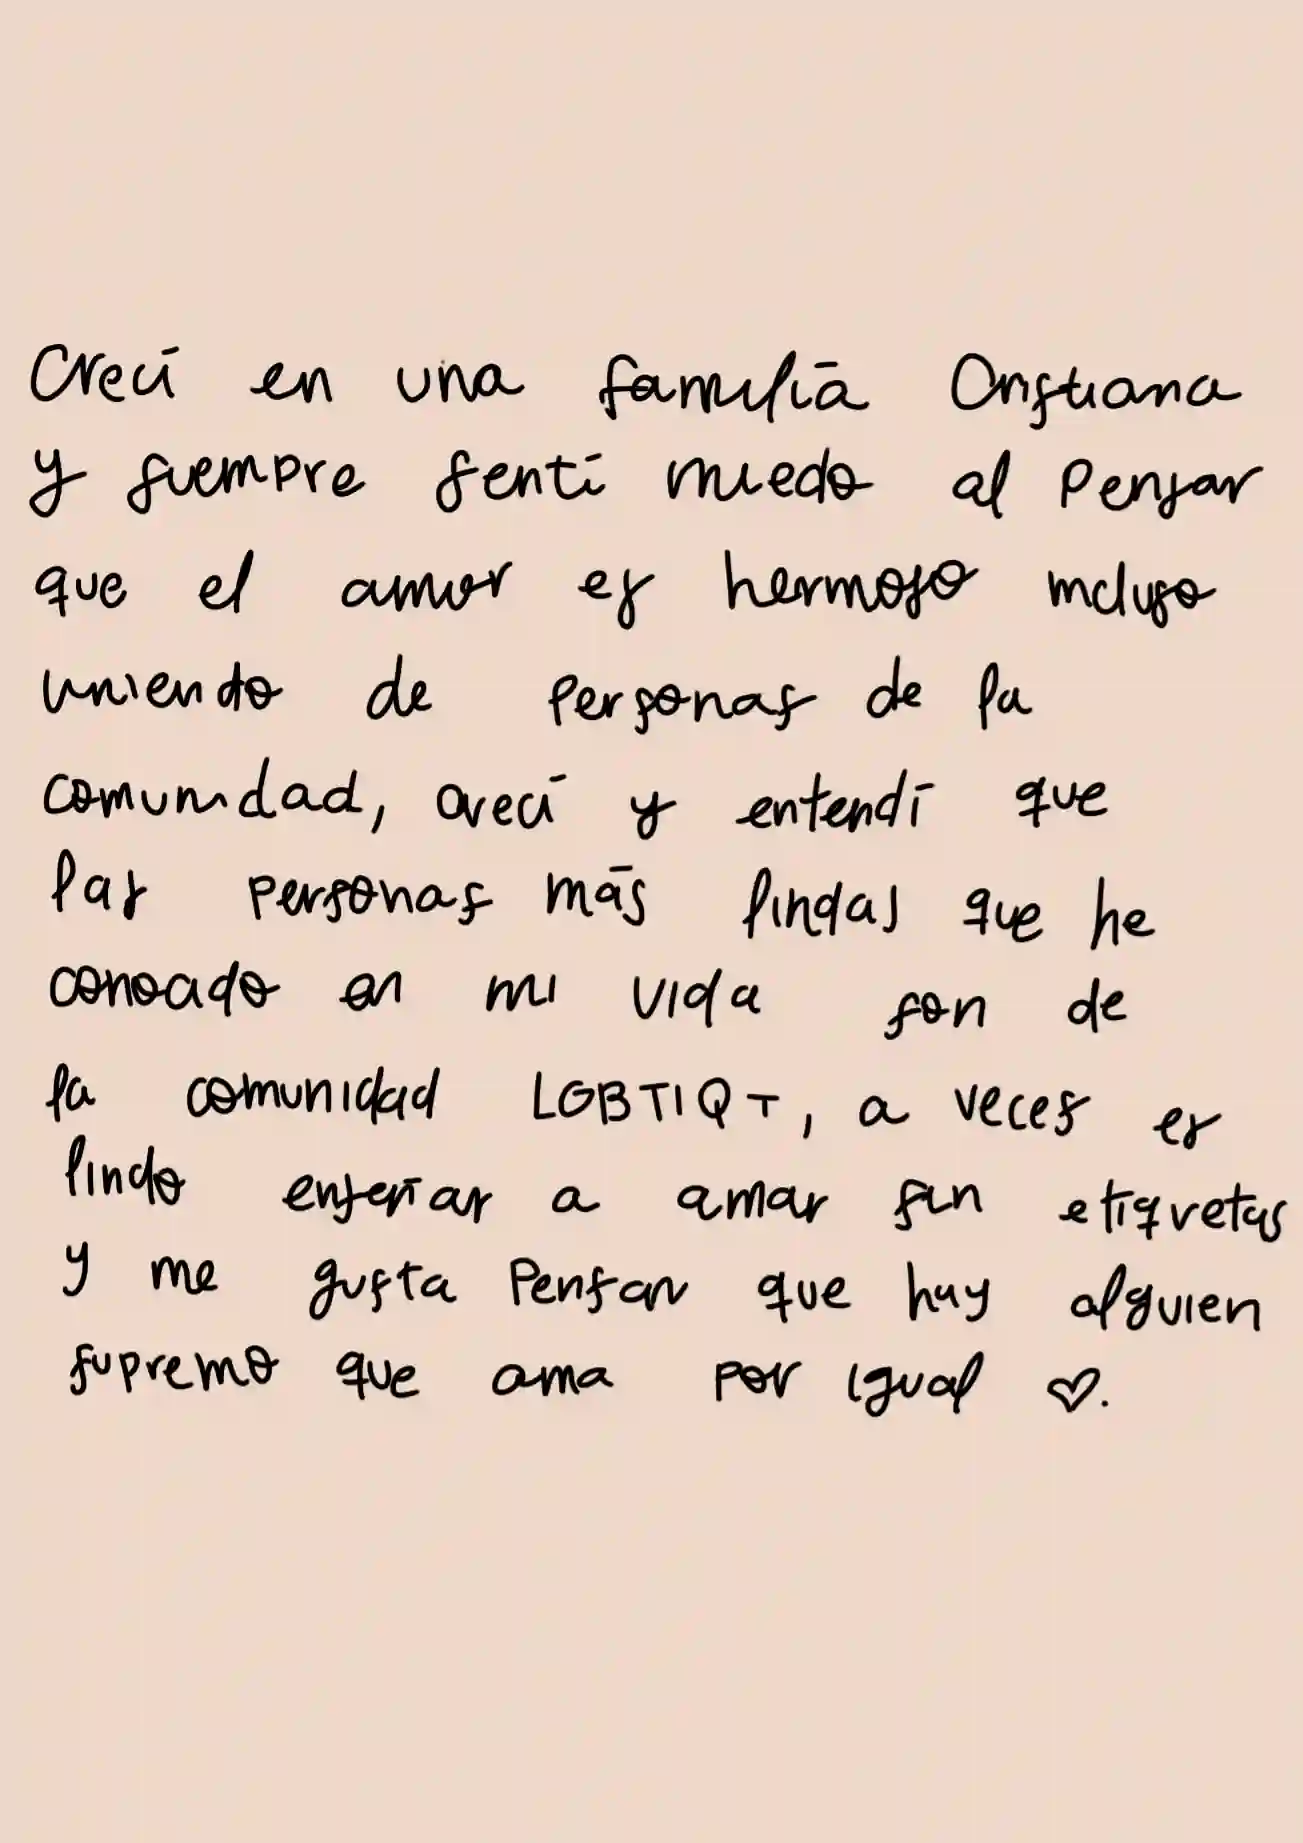 Crecí en una familia Cristiana
y siempre sentí miedo al Pensar
que el amor es hermoso incluso
uniendo de Personas de la
comunidad, crecí y entendí que
las personas más lindas que he
conocido en mi vida son de
la comunidad LGBTIQT, a veces es
lindo enseñar a amar sin etiquetas
y me gusta Pensar que hay alguien
supremo que ama por igual ♡.